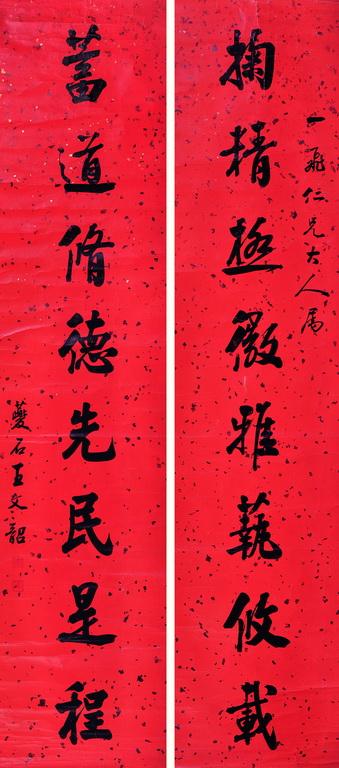 一飛仁兄大人属
掬精極徵雅蓺攸載
蓄道脩德先民是程
夔石王文韶